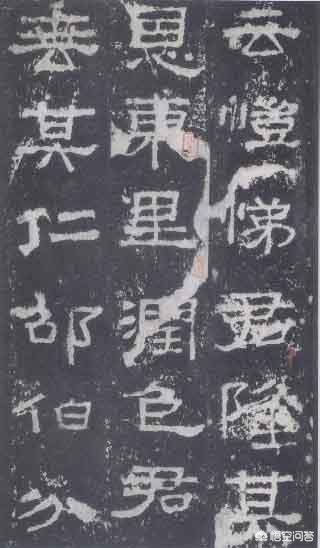 云愷悌君隆其
恩東里潤色君
垂其仁邵伯分
悟空问答